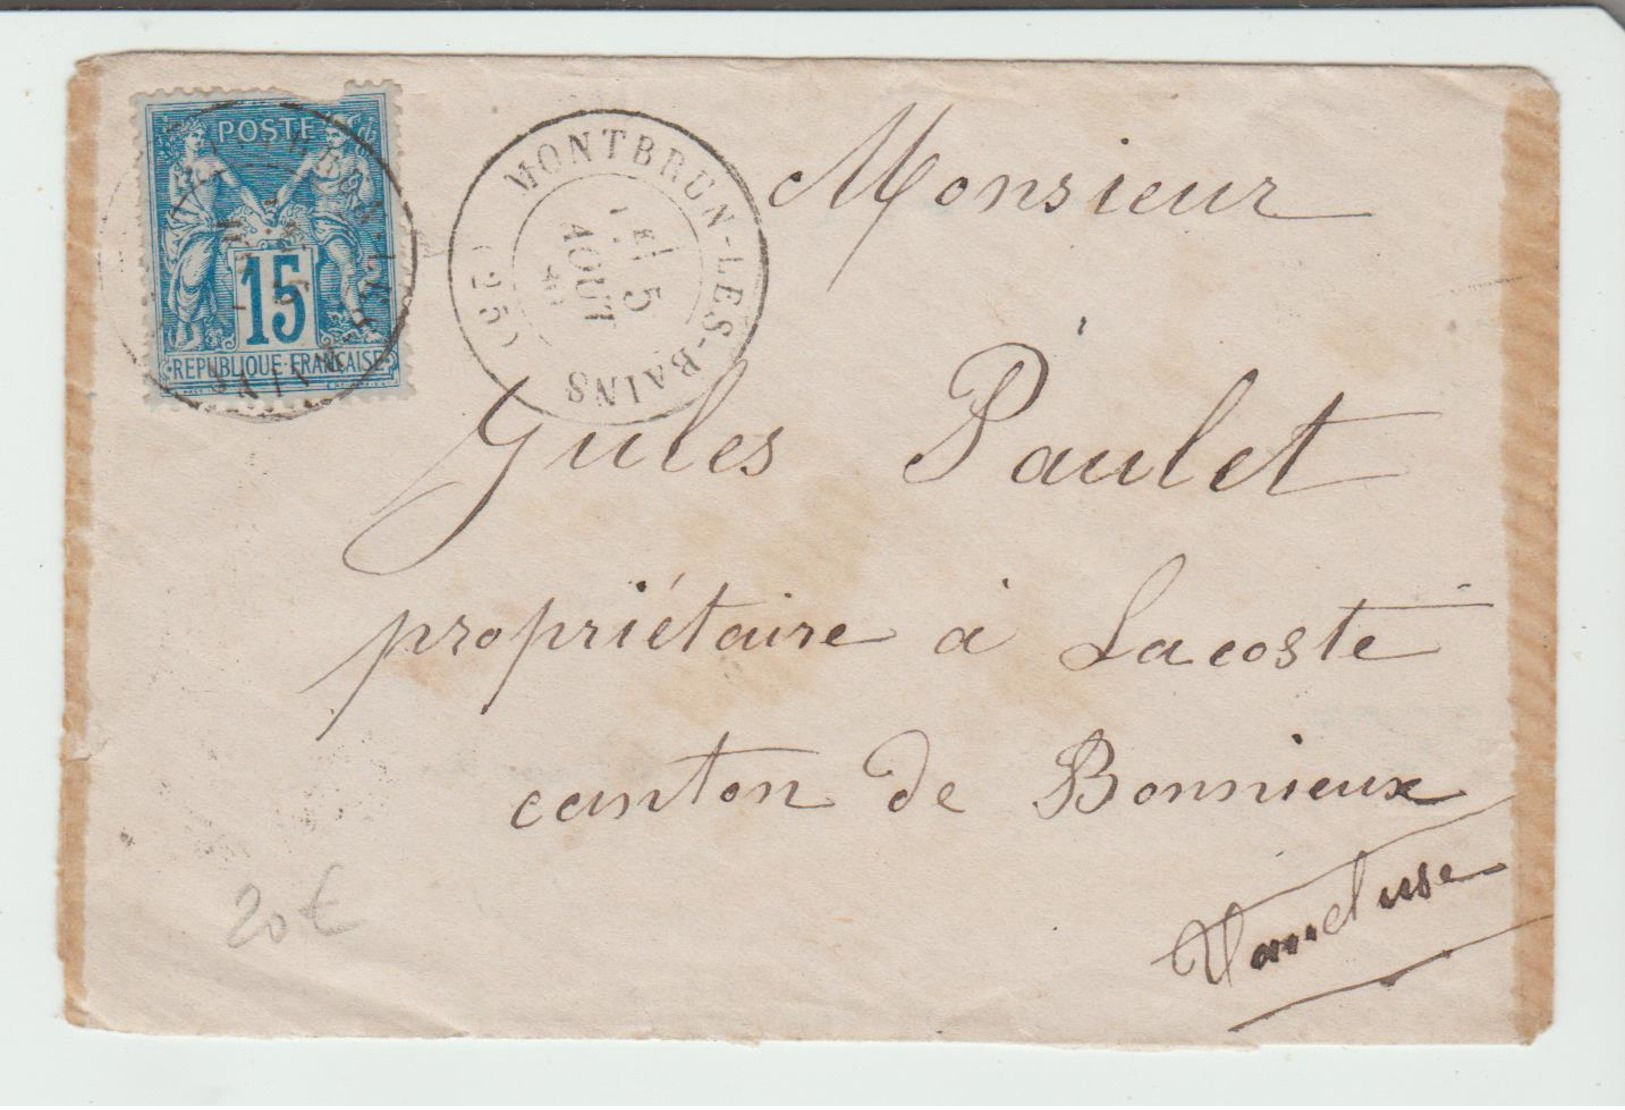 POSTE
15
REPUBLIQUE FRANCAISE
MONTBRUN-LES-BAINS
5
AOUT
(25)
Monsieur
Jules Paulet
propriétaire à Lacoste
canton de Bonnieux
Vaucluse
20€